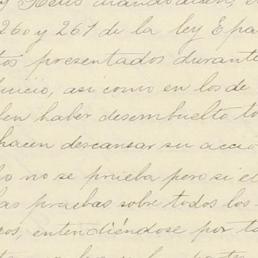 y Reus mandatario, 
260 y 261 de la ley Epa
tos presentados durante
juicio, así como en los de
ben haber desembuelto to
hacen descansar su acció
lo no se prueba pero si el
las pruebas sobre todos los
cos, entendiéndose por to